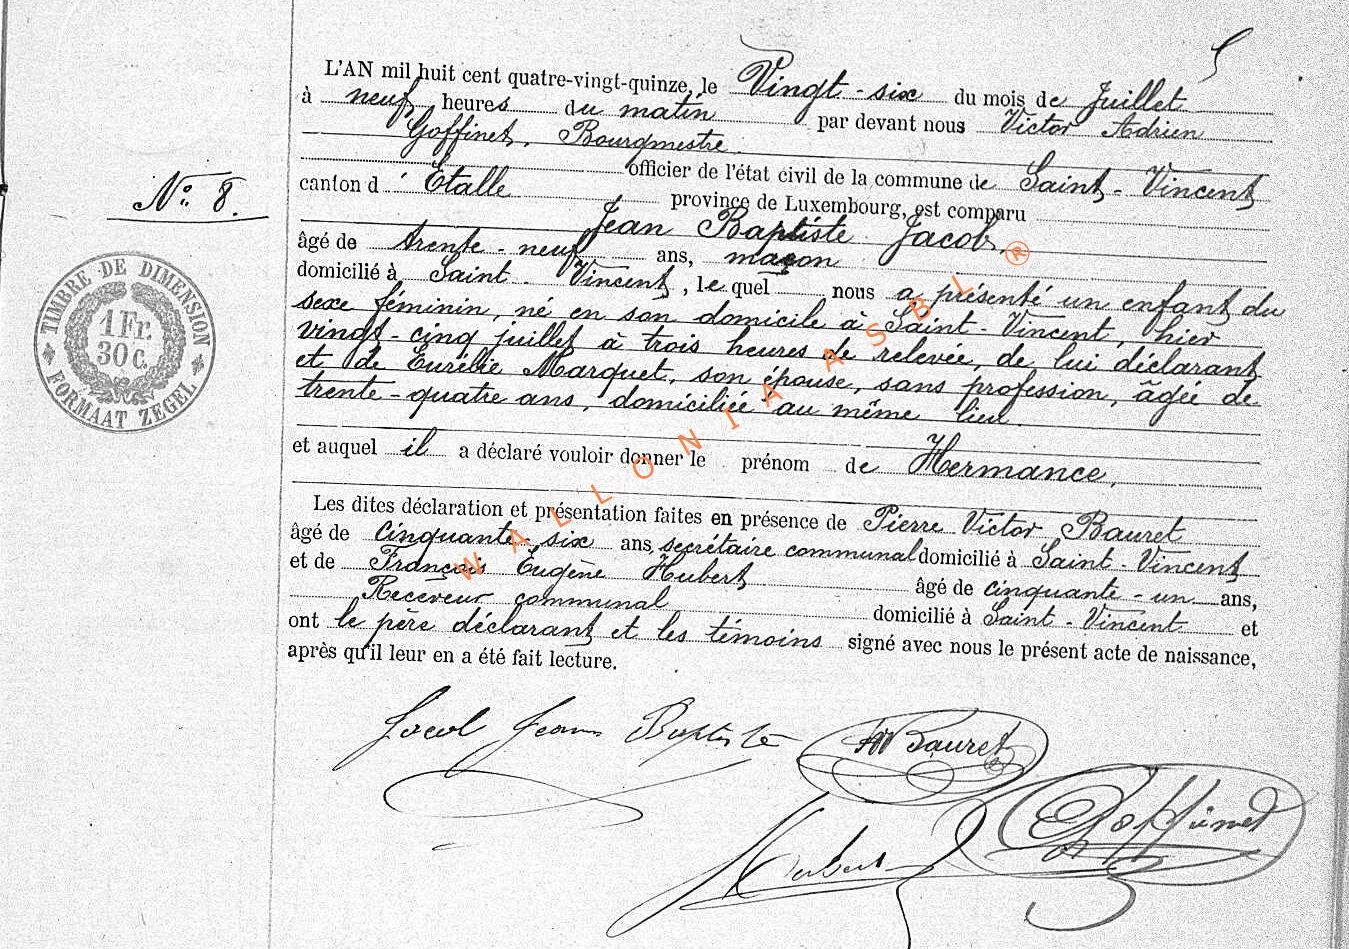 5
L'AN mil huit cent quatre-vingt-quinze, le Vingt-six du mois de Juillet
à neuf heures du matin par devant nous Victor Adrien
Goffinet, Bourgmestre.
officier de l'état civil de la commune de Saint-Vincent
canton d'Etalle province de Luxembourg, est comparu
Jean Baptiste Jacob,
âgé de trente-neuf ans, maçon
domicilié à Saint-Vincent, le quel nous a présenté un enfant du
sexe féminin, né en son domicile à Saint-Vincent, hier
vingt-cinq juillet à trois heures de relevée, de lui déclarant
et de Eurélie Marquet, son épouse, sans profession, âgée de
trente-quatre ans, domiciliée au même lieu.
et auquel il a déclaré vouloir donner le prénom de Hermance,
Les dites déclaration et présentation faites en présence de Pierre Victor Bauret
âgé de cinquante-six ans, secrétaire communal domicilié à Saint-Vincent
et de François Eugène Hubert âgé de cinquante-un ans,
Receveur communal domicilié à Saint-Vincent et
ont le père déclarant et les témoins signé avec nous le présent acte de naissance,
après qu'il leur en a été fait lecture.
Jacob Jean Baptiste
Bauret
Hubert
Goffinet
No: 8.
TIMBRE DE DIMENSION
1 Fr.
30 C.
FORMAAT ZEGEL
WALLONIA ASBL ®